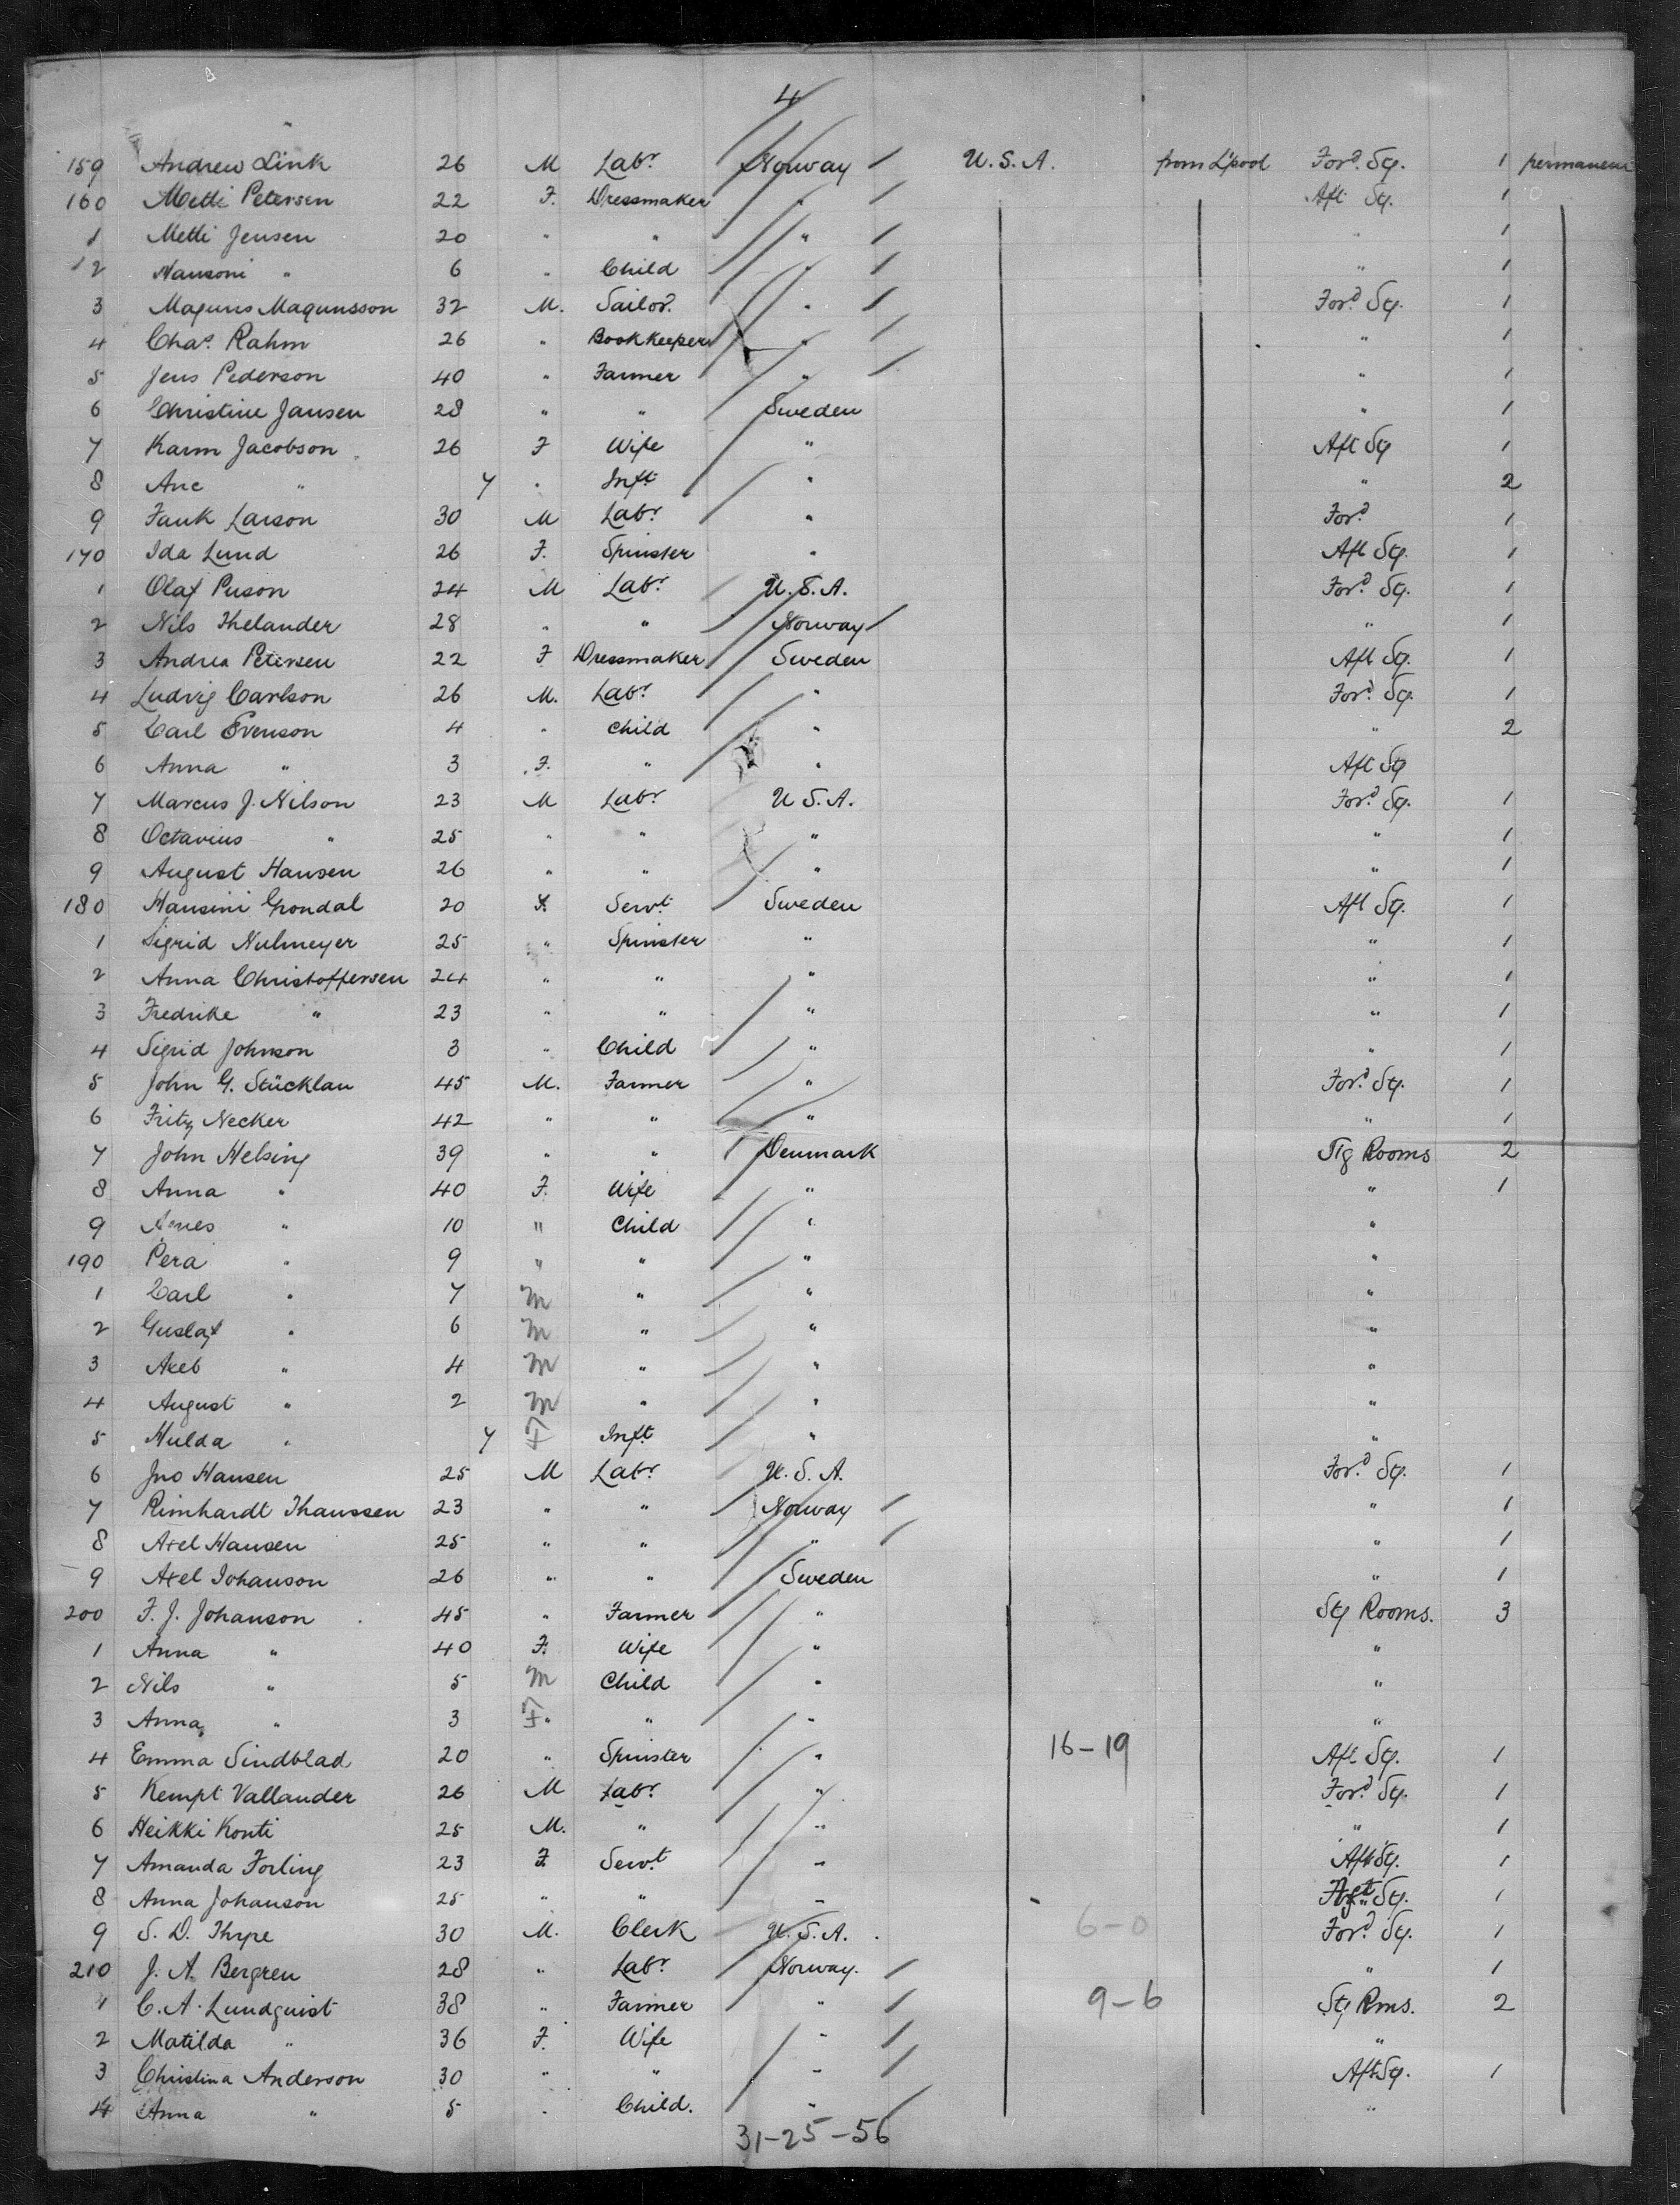 4
159 Andrew Link 26 M Labr Norway / U.S.A. from L'pool Ford Stg. 1 permanent
160 Metti Petersen 22 F. Dressmaker " / Aft Stg. 1
1 Metti Jensen 20 " " " / " 1
2 Hansoni " 6 " Child " / " 1
3 Magnus Magnusson 32 M. Sailor " / Ford Stg. 1
4 Chas. Rahm 26 " Bookkeeper " / " 1
5 Jens Pederson 40 " Farmer " / " 1
6 Christine Jansen 28 " " Sweden " 1
7 Karin Jacobson 26 F Wife " Aft Stg 1
8 Ane " 7 " Inft " " 2
9 Fauk Larson 30 M Labr " Ford 1
170 Ida Lund 26 F. Spinster " Aft Stg. 1
1 Olaf Puson 24 M Labr U.S.A. Ford Stg. 1
2 Nils Thelander 28 " " Norway / " 1
3 Andrea Petersen 22 F Dressmaker Sweden Aft Stg. 1
4 Ludvig Carlson 26 M. Labr " Ford Stg. 1
5 Carl Evenson 4 " Child " " 2
6 Anna " 3 F. " " Aft Stg
7 Marcus J. Nilson 23 M Labr U.S.A. Ford Stg. 1
8 Octavius " 25 " " " " 1
9 August Hansen 26 " " " " 1
180 Hansini Grondal 20 F. Servt Sweden Aft Stg. 1
1 Sigrid Nulmeyer 25 " Spinster " " 1
2 Anna Christoffersen 24 " " " " 1
3 Fredrike " 23 " " " " 1
4 Sigrid Johnson 3 " Child " " 1
5 John G. Stücklau 45 M. Farmer " Ford Stg. 1
6 Fritz Necker 42 " " " " 1
7 John Helsing 39 " " Denmark Stg Rooms 2
8 Anna " 40 F. Wife " " 1
9 Agnes " 10 " Child " "
190 Pera " 9 " " " "
1 Carl " 7 M " " "
2 Gustaf " 6 M " " "
3 Axel " 4 M " " "
4 August " 2 M " " "
5 Hulda " 7 F Inft " "
6 Jno Hansen 25 M Labr U.S.A. Ford Stg. 1
7 Rimhardt Thaussen 23 " " Norway / " 1
8 Axel Hansen 25 " " " / " 1
9 Axel Johanson 26 " " Sweden " 1
200 F. J. Johanson 45 " Farmer " Stg Rooms. 3
1 Anna " 40 F. Wife " "
2 Nils " 5 M Child " "
3 Anna " 3 F " " "
4 Emma Lindblad 20 " Spinster " 16-19 Aft Stg. 1
5 Kempt Vallander 26 M Labr " Ford Stg. 1
6 Heikki Konti 25 M. " " " 1
7 Amanda Forling 23 F Servt " Aft Stg. 1
8 Anna Johanson 25 " " " Aft Stg. 1
9 S. D. Thrpe 30 M. Clerk U.S.A. 6-0 Ford Stg. 1
210 J. A. Bergren 28 " Labr Norway. / " 1
1 C. A. Lundquist 38 " Farmer " / 9-6 Stg Rms. 2
2 Matilda " 36 F. Wife " / "
3 Christina Anderson 30 " " " / Aft Stg. 1
4 Anna " 5 " Child. " / "
31-25-56